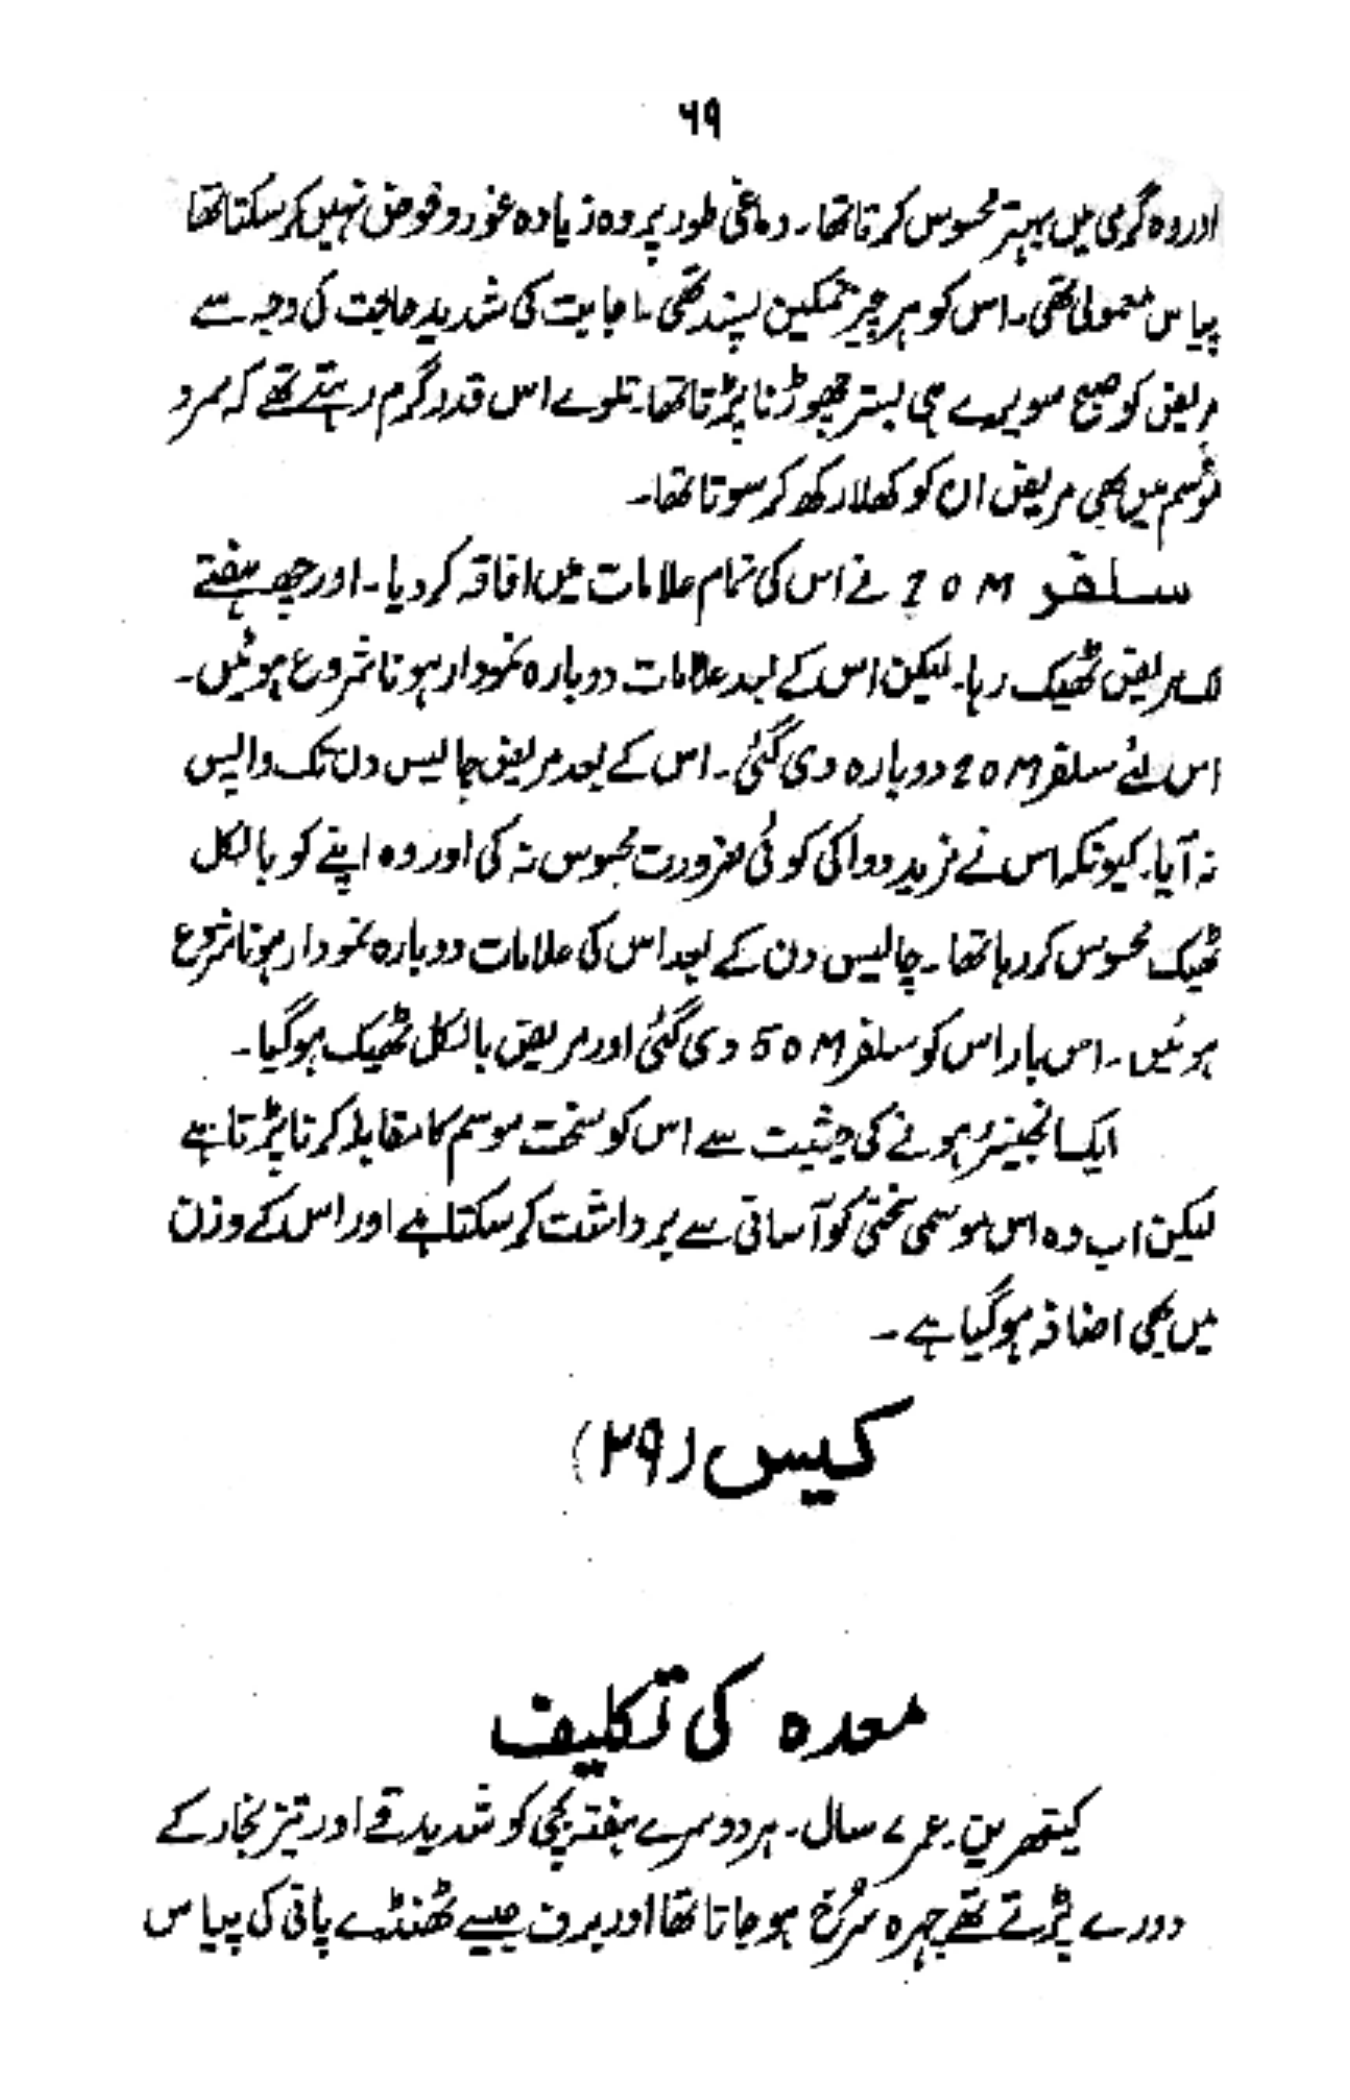 ۶۹
اور وہ گرمی میں بہتر محسوس کرتا تھا۔ دماغی طور پر وہ زیادہ غور و خوض نہیں کر سکتا تھا
پیاس معمولی تھی۔ اس کو ہر چیز نمکین پسند تھی۔ اجابت کی شدید حاجت کی وجہ سے
مریض کو صبح سویرے ہی بستر چھوڑنا پڑتا تھا۔ تلوے اس قدر گرم رہتے تھے کہ سرد
موسم میں بھی مریض ان کو کھلا رکھ کر سوتا تھا۔
سلفر 20M نے اس کی تمام علامات میں افاقہ کر دیا۔ اور چھ ہفتے
تک مریض ٹھیک رہا۔ لیکن اس کے بعد علامات دوبارہ نمودار ہونا شروع ہوئیں۔
اس لئے سلفر 20M دوبارہ دی گئی۔ اس کے بعد مریض چالیس دن تک واپس
نہ آیا۔ کیونکہ اس نے مزید دوا کی کوئی ضرورت محسوس نہ کی اور وہ اپنے کو بالکل
ٹھیک محسوس کر رہا تھا۔ چالیس دن کے بعد اس کی علامات دوبارہ نمودار ہونا شروع
ہوئیں۔ اس بار اس کو سلفر 50M دی گئی اور مریض بالکل ٹھیک ہو گیا۔
ایک انجینئر ہونے کی حیثیت سے اس کو سخت موسم کا مقابلہ کرنا پڑتا ہے
لیکن اب وہ اس موسمی سختی کو آسانی سے برداشت کر سکتا ہے اور اس کے وزن
میں بھی اضافہ ہو گیا ہے۔
کیس (۲۹)
معدہ کی تکلیف
کیتھرین۔ عمر ۷ سال۔ ہر دوسرے ہفتہ بچی کو شدید قے اور تیز بخار کے
دورے پڑتے تھے چہرہ سُرخ ہو جاتا تھا اور برف جیسے ٹھنڈے پانی کی پیاس